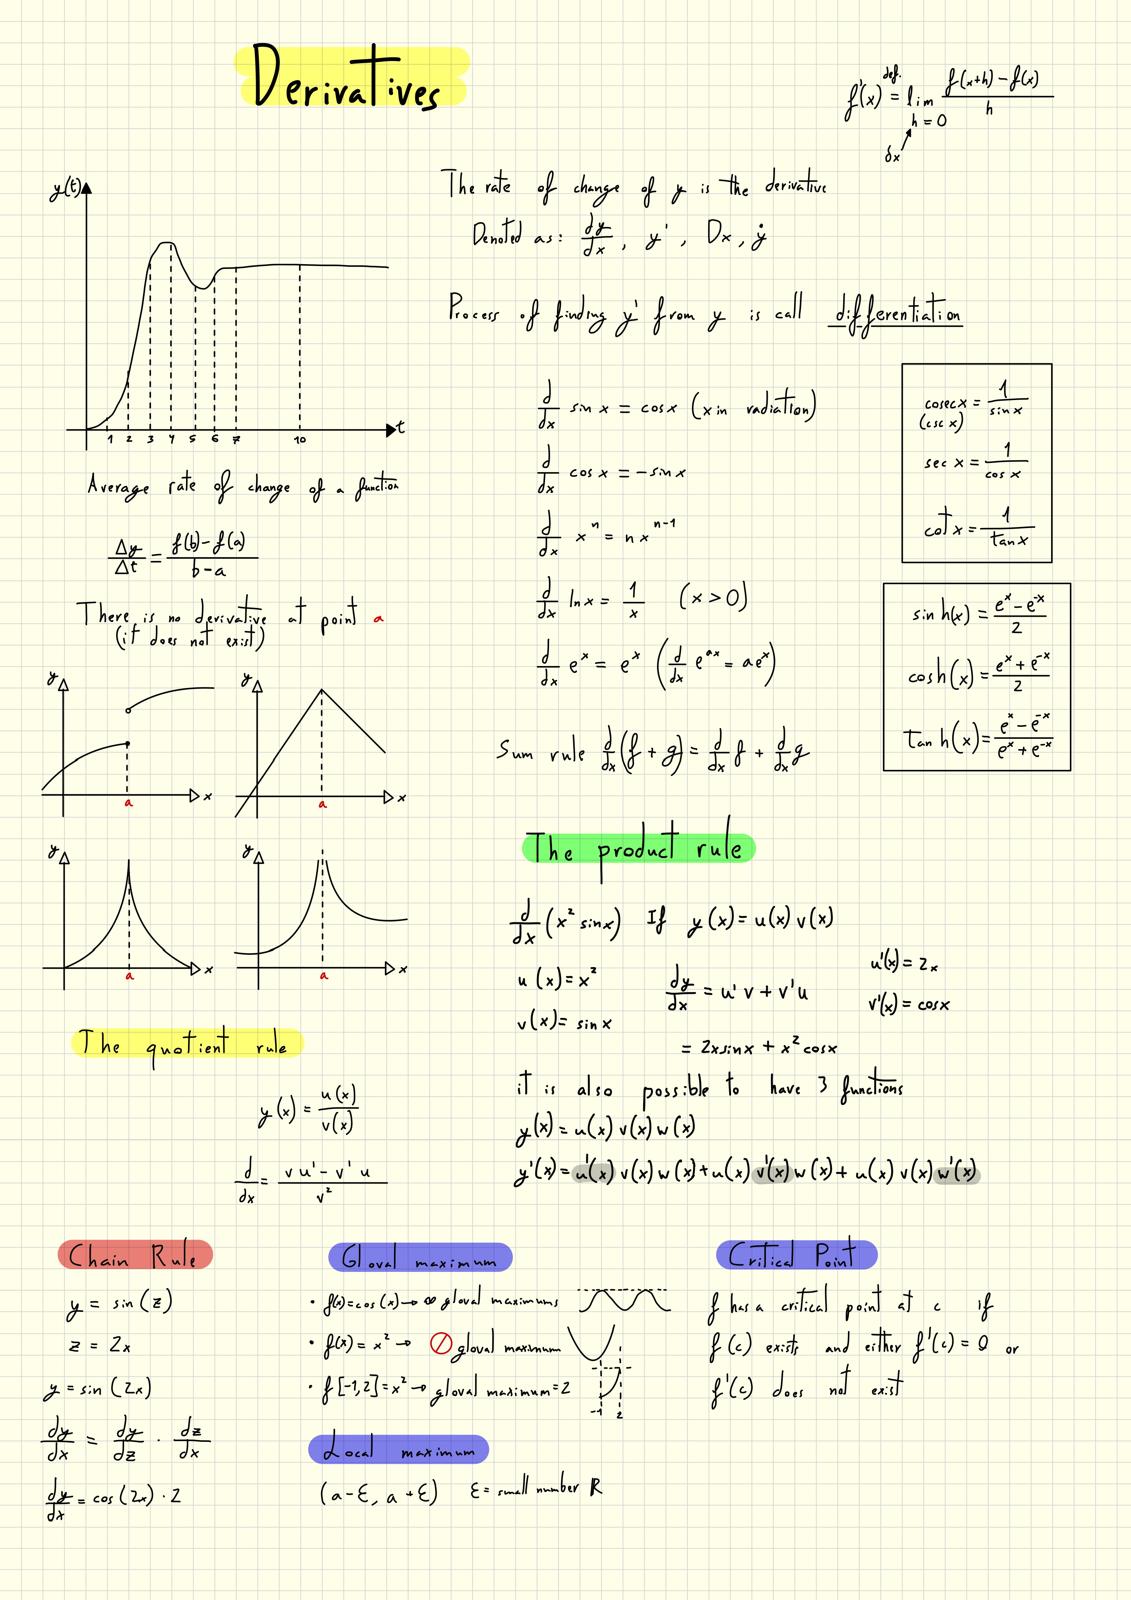 Derivatives
f'(x) def. = lim h = 0 f(x+h) - f(x) / h
δx
y(t)
t
1 2 3 4 5 6 7 10
The rate of change of y is the derivative
Denoted as: dy/dx, y', Dx, ẏ
Process of finding y' from y is call differentiation
d/dx sin x = cos x (x in radiation)
d/dx cos x = - sin x
d/dx xⁿ = n xⁿ⁻¹
d/dx ln x = 1/x (x > 0)
d/dx eˣ = eˣ (d/dx eᵃˣ = aeˣ)
Sum rule d/dx (f + g) = d/dx f + d/dx g
cosec x = 1/sin x
(csc x)
sec x = 1/cos x
cot x = 1/tan x
sin h(x) = eˣ - e⁻ˣ / 2
cos h(x) = eˣ + e⁻ˣ / 2
tan h(x) = eˣ - e⁻ˣ / eˣ + e⁻ˣ
Average rate of change of a function
Δy/Δt = f(b) - f(a) / b - a
There is no derivative at point a
(it does not exist)
y x a
y x a
y x a
y x a
The quotient rule
y(x) = u(x)/v(x)
d/dx = v u' - v' u / v²
The product rule
d/dx (x² sin x) If y(x) = u(x) v(x)
u(x) = x²
v(x) = sin x
dy/dx = u' v + v' u
= 2x sin x + x² cos x
u'(x) = 2x
v'(x) = cos x
it is also possible to have 3 functions
y(x) = u(x) v(x) w(x)
y'(x) = u'(x) v(x) w(x) + u(x) v'(x) w(x) + u(x) v(x) w'(x)
Chain Rule
y = sin (z)
z = 2x
y = sin (2x)
dy/dx = dy/dz · dz/dx
dy/dx = cos (2x) · 2
Gloval maximum
· f(x) = cos (x) → ∞ gloval maximums
· f(x) = x² → gloval maximum
· f [-1, 2] = x² → gloval maximum = 2
-1 2
Local maximum
(a - ε, a + ε) ε = small number R
Critical Point
f has a critical point at c if
f (c) exists and either f'(c) = 0 or
f'(c) does not exist